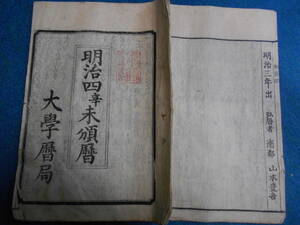 明治四辛未頒暦
大學暦局
明治三年出
弘暦者 南都 山本